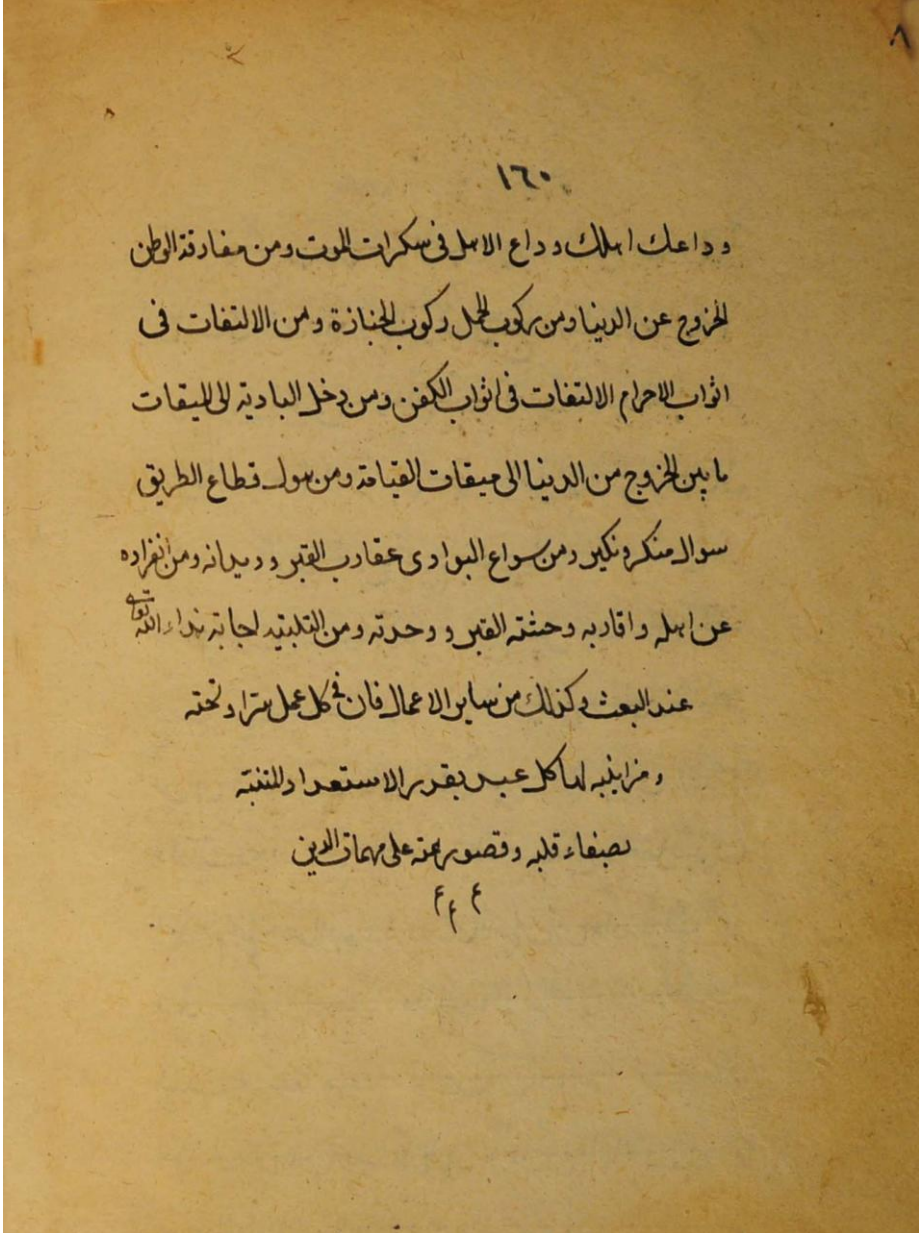 ٨
١٦٠
وداعك اهلك وداع الاهل فى سكرات الموت ومن مفارقة الوطن
الخروج عن الدنيا ومن ركوب الجمل ركوب الجنازة ومن الالتفات فى
اثواب الاحرام الالتفات فى اثواب الكفن ومن دخل البادية الى الميقات
ما بين الخروج من الدنيا الى ميقات القيامة ومن هول قطاع الطريق
سوال منكر ونكير ومن سواع البوادى عقارب القبر وديدانه ومن انفراده
عن اهله واقاربه وحشته القبر ووحدته ومن التلبيه اجابة نداء الله تعالى
عند البعث وكذلك من ساير الاعمال فان فى كل عمل سترا وتحته
رمزا ينبه لها كل عبد بقدر الاستعداد للتنبه
بصفاء قلبه وقصور همته على مهمات الدين